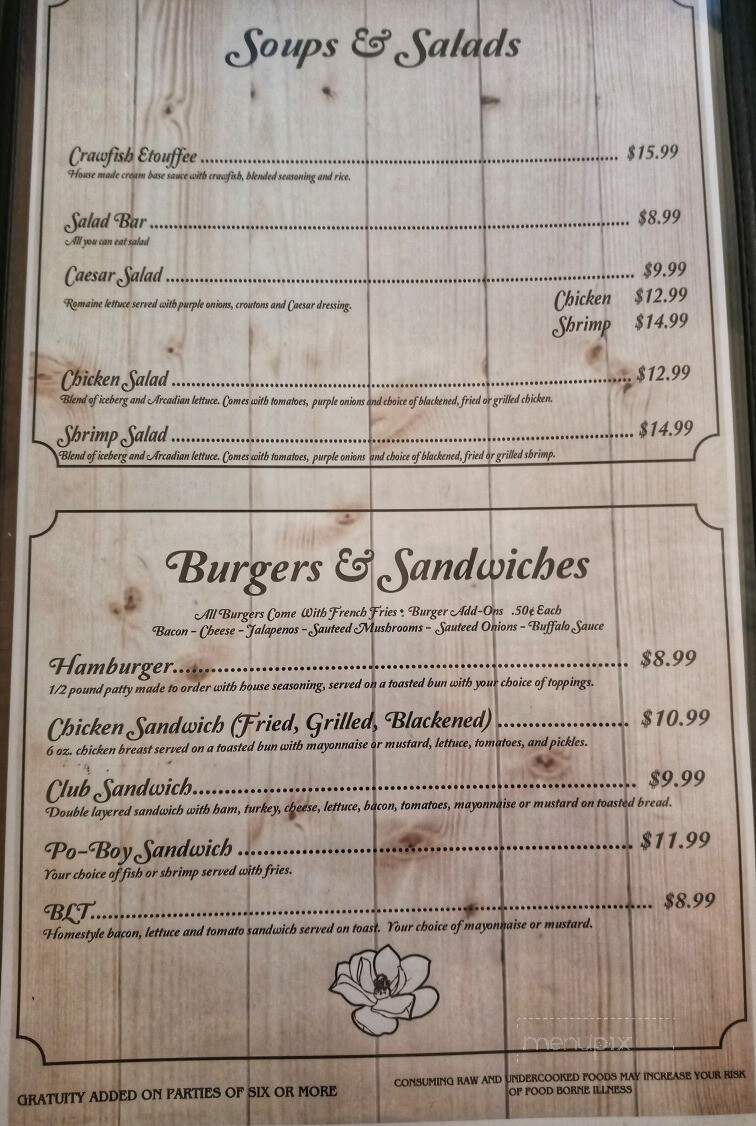 Soups & Salads
Crawfish Etouffee ........ $15.99
House made cream base sauce with crawfish, blended seasoning and rice.
Salad Bar ........ $8.99
All you can eat salad
Caesar Salad ........ $9.99
Romaine lettuce served with purple onions, croutons and Caesar dressing.
Chicken $12.99
Shrimp $14.99
Chicken Salad ........ $12.99
Blend of iceberg and Arcadian lettuce. Comes with tomatoes, purple onions and choice of blackened, fried or grilled chicken.
Shrimp Salad ........ $14.99
Blend of iceberg and Arcadian lettuce. Comes with tomatoes, purple onions and choice of blackened, fried or grilled shrimp.
Burgers & Sandwiches
All Burgers Come With French Fries • Burger Add-Ons .50¢ Each
Bacon - Cheese - Jalapenos - Sauteed Mushrooms - Sauteed Onions - Buffalo Sauce
Hamburger........ $8.99
1/2 pound patty made to order with house seasoning, served on a toasted bun with your choice of toppings.
Chicken Sandwich (Fried, Grilled, Blackened) ........ $10.99
6 oz. chicken breast served on a toasted bun with mayonnaise or mustard, lettuce, tomatoes, and pickles.
Club Sandwich........ $9.99
Double layered sandwich with ham, turkey, cheese, lettuce, bacon, tomatoes, mayonnaise or mustard on toasted bread.
Po-Boy Sandwich ........ $11.99
Your choice of fish or shrimp served with fries.
BLT........ $8.99
Homestyle bacon, lettuce and tomato sandwich served on toast. Your choice of mayonnaise or mustard.
menupix
GRATUITY ADDED ON PARTIES OF SIX OR MORE
CONSUMING RAW AND UNDERCOOKED FOODS MAY INCREASE YOUR RISK
OF FOOD BORNE ILLNESS